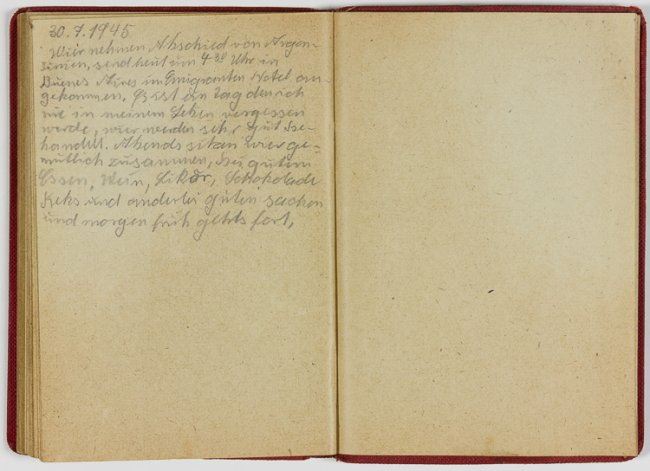 30.7.1945
Wier nehmen Abschied von Argen-
tinien, send heut um 4 30 Uhr in
Buenes Aires im Emigranten Hotel an-
gekommen. Es ist ein Tag den ich
nie in meinem Leben vergessen
werde, wier werden sehr gut be-
handelt. Abends sitzen wier ge-
mütlich zusammen, bei gutem
Essen, Wein, Likör, Schokolade
Keks und anderlei guten sachen
und morgen früh gehts fort,